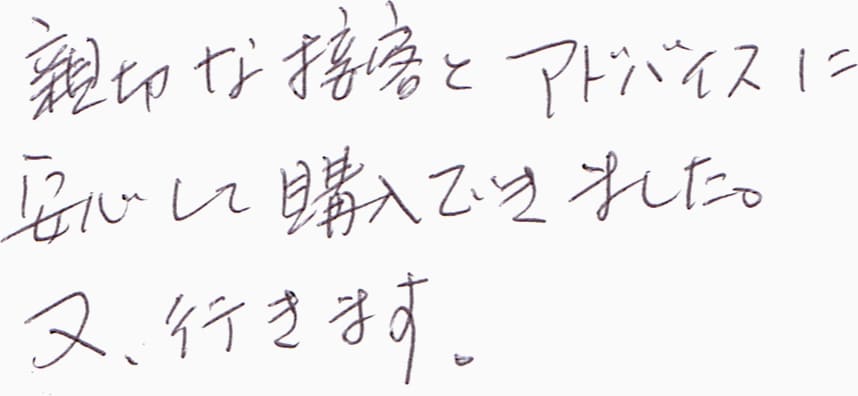 親切な接客とアドバイスに
安心して購入できました。
又、行きます。